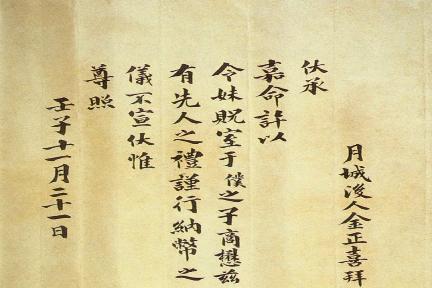 月城後人金正喜拜
伏承
嘉命許以
令妹貺室于僕之子商懋玆
有先人之禮謹行納幣之
儀不宣伏惟
尊照
壬子十一月二十一日